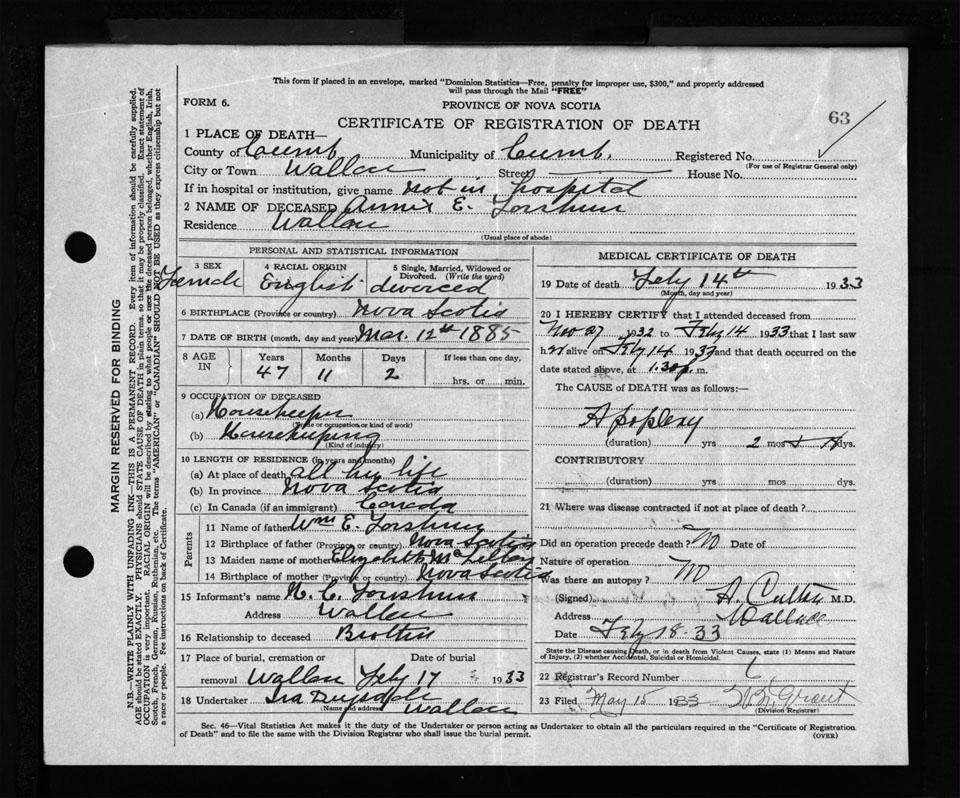 This form if placed in an envelope, marked "Dominion Statistics—Free, penalty for improper use, $300," and properly addressed
will pass through the Mail "FREE"
FORM 6.
PROVINCE OF NOVA SCOTIA
63
CERTIFICATE OF REGISTRATION OF DEATH
1 PLACE OF DEATH—
County of Cumb Municipality of Cumb. Registered No.
(For use of Registrar General only)
City or Town Wallace Street House No.
If in hospital or institution, give name not in hospital
2 NAME OF DECEASED Annie E.
Residence Wallace
(Usual place of abode)
PERSONAL AND STATISTICAL INFORMATION
3 SEX 4 RACIAL ORIGIN 5 Single, Married, Widowed or Divorced. (Write the word)
Female English divorced
6 BIRTHPLACE (Province or country) Nova Scotia
7 DATE OF BIRTH (month, day and year) Mar. 12th 1885
8 AGE IN Years Months Days If less than one day,
47 11 2 hrs. or min.
9 OCCUPATION OF DECEASED
(a) Housekeeper
(Trade or occupation or kind of work)
(b) Housekeeping
(Kind of industry)
10 LENGTH OF RESIDENCE (in years and months)
(a) At place of death all her life
(b) In province Nova Scotia
(c) In Canada (if an immigrant) Canada
Parents
11 Name of father Wm E.
12 Birthplace of father (Province or country) Nova Scotia
13 Maiden name of mother Elizabeth
14 Birthplace of mother (Province or country) Nova Scotia
15 Informant's name
Address Wallace
16 Relationship to deceased Brother
17 Place of burial, cremation or Date of burial
removal Wallace Feby 17 1933
18 Undertaker Ira
(Name and address) Wallace
MEDICAL CERTIFICATE OF DEATH
19 Date of death Feby 14th 1933
(Month, day and year)
20 I HEREBY CERTIFY that I attended deceased from
Nov 27 1932 to Feby 14 1933 that I last saw
her alive on Feby 14 1933 and that death occurred on
date stated above, at 1.30 p. m.
The CAUSE of DEATH was as follows:—
Apoplexy
(duration) yrs 2 mos dys.
CONTRIBUTORY
(duration) yrs mos dys.
21 Where was disease contracted if not at place of death?
Did an operation precede death? No Date of
Nature of operation
Was there an autopsy? No
(Signed) A. M.D.
Address Wallace
Date Feby 18. 33
State the Disease causing Death, or in death from Violent Causes, state (1) Means and Nature
of Injury, (2) whether Accidental, Suicidal or Homicidal.
22 Registrar's Record Number 6
23 Filed May 15 1933 Grant
(Division Registrar)
Sec. 46—Vital Statistics Act makes it the duty of the Undertaker or person acting as Undertaker to obtain all the particulars required in the "Certificate of Registration
of Death" and to file the same with the Division Registrar who shall issue the burial permit.
(OVER)
MARGIN RESERVED FOR BINDING
N.B.—WRITE PLAINLY WITH UNFADING INK—THIS IS A PERMANENT RECORD. Every item of information should be carefully supplied.
AGE should be stated EXACTLY. PHYSICIANS should STATE CAUSE OF DEATH in plain terms, so that it may be properly classified. Exact statement of
OCCUPATION is very important. RACIAL ORIGIN will be described by stating to what people or race the deceased person belonged, whether English, Irish,
Scotch, French, German, Russian, Ruthenian, etc. The terms "AMERICAN" or "CANADIAN" SHOULD NOT BE USED as they express citizenship but not
a race or people. See instructions on back of Certificate.